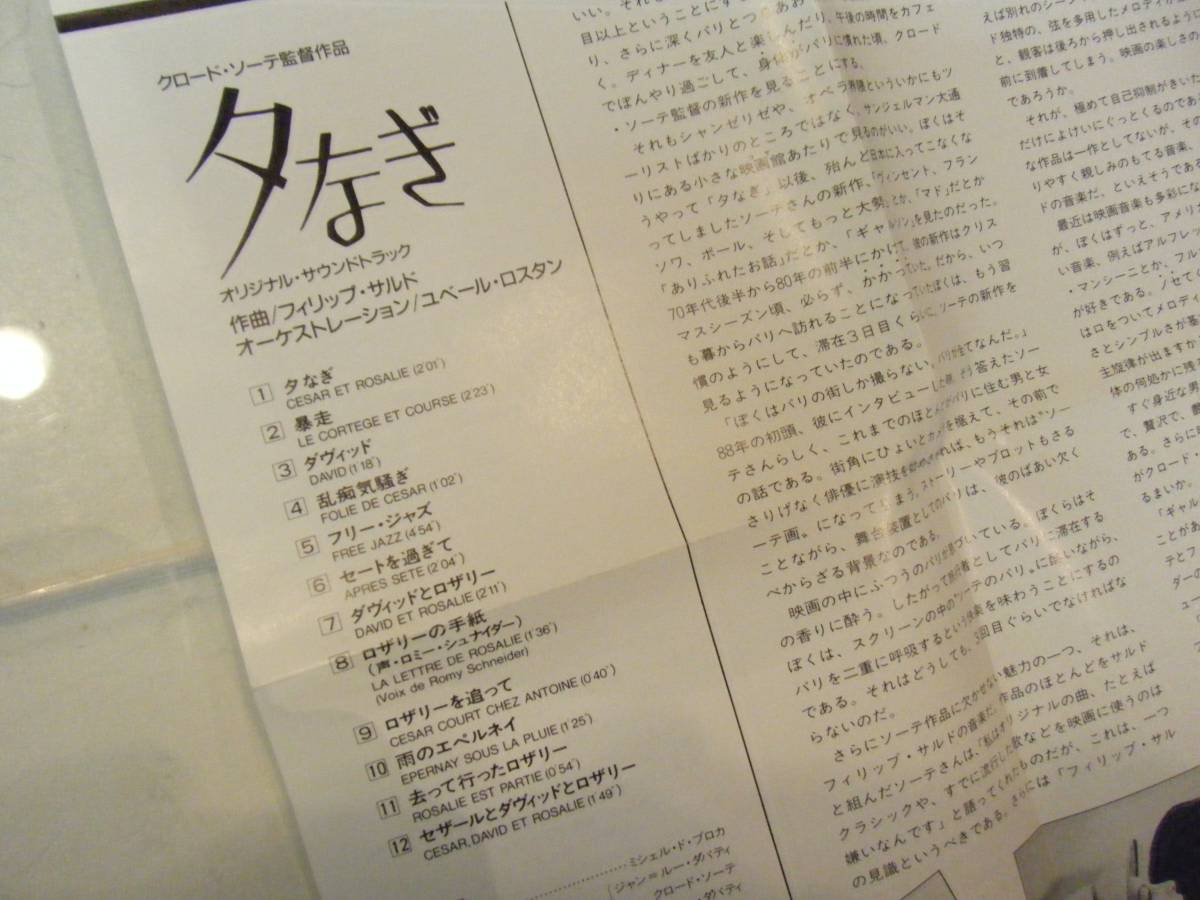 クロード・ソーテ監督作品
夕なぎ
オリジナル・サウンドトラック
作曲/フィリップ・サルド
オーケストレーション/ユベール・ロスタン
1 夕なぎ
CESAR ET ROSALIE (2'01")
2 暴走
LE CORTEGE ET COURSE (2'23")
3 ダヴィッド
DAVID (1'18")
4 乱痴気騒ぎ
FOLIE DE CESAR (1'02")
5 フリー・ジャズ
FREE JAZZ (4'54")
6 セートを過ぎて
APRES SETE (2'04")
7 ダヴィッドとロザリー
DAVID ET ROSALIE (2'11")
8 ロザリーの手紙
(声・ロミー・シュナイダー)
LA LETTRE DE ROSALIE (1'36")
(Voix de Romy Schneider)
9 ロザリーを追って
CESAR COURT CHEZ ANTOINE (0'40")
10 雨のエペルネイ
EPERNAY SOUS LA PLUIE (1'25")
11 去って行ったロザリー
ROSALIE EST PARTIE (0'54")
12 セザールとダヴィッドとロザリー
CESAR, DAVID ET ROSALIE (1'49")
ミシェル・ド・ブロカ
ジャン＝ルー・ダバディ
クロード・ソーテ
目以上ということに
り、さらに深くパリとつ
く。ディナーを友人と楽しんだり、午後の時間をカフェ
でぼんやり過ごして、身体がパリに慣れた頃、クロード
・ソーテ監督の新作を見ることにする。
それもシャンゼリゼや、オペラ界隈といういかにもツ
ーリストばかりのところではなく、サンジェルマン大通
りにある小さな映画館あたりで見るのがいい。ぼくはそ
うやって「夕なぎ」以後、殆んど日本に入ってこなくな
ってしましたソーテさんの新作、「ヴィンセント、フラン
ソワ、ポール、そしてもっと大勢」とか、「マド」だとか
「ありふれたお話」だとか、「ギャルソン」を見たのだった。
70年代後半から80年の前半にかけて、彼の新作はクリス
マスシーズン頃、必らず、かかっていた。だから、いつ
も暮からパリへ訪れることになっていたぼくは、もう習
慣のようにして、滞在3日目くらいに、ソーテの新作を
見るようになっていたのである。
「ぼくはパリの街しか撮らない。パリが全てなんだ。」
88年の初頭、彼にインタビューした時、そう答えたソー
テさんらしく、これまでのほとんどがパリに住む男と女
の話である。街角にひょいとカメラを据えて、その前で
さりげなく俳優に演技を始めさせれば、もうそれは"ソー
テ画"になってしまう。ストーリーやプロットもさる
ことながら、舞台装置としてのパリは、彼のばあい欠く
べからざる背景なのである。
映画の中にふつうのパリが息づいている。ぼくらはそ
の香りに酔う。したがって旅行者としてパリに滞在する
ぼくは、スクリーンの中の"ソーテのパリ"に酔いながら、
パリを二重に呼吸するという快楽を味わうことにするの
である。それはどうしても、3回目ぐらいでなければな
らないのだ。
さらにソーテ作品に欠かせない魅力の一つ、それは、
フィリップ・サルドの音楽だ。作品のほとんどをサルド
と組んだソーテさんは、「私はオリジナルの曲、たとえば
クラシックや、すでに流行した歌などを映画に使うのは
嫌いなんです」と語ってくれたものだが、これは、一つ
の見識というべきである。さらには「フィリップ・サル
えば別れのシーン
ド独特の、弦を多用したメロディが
と、観客は後ろから押し出されるように
前に到着してしまう。映画の楽しさの
であろうか。
それが、極めて自己抑制がきいた
だけによけいにぐっとくるのであ
な作品は一作としてないが、その
りやすく親しみのもてる音楽、
ドの音楽だ、といえそうである
最近は映画音楽も多彩にな
が、ぼくはずっと、アメリカ
い音楽、例えばアルフレッ
・マンシーニとか、フル
が好きである。ノセてく
は口をついてメロディ
さとシンプルさが基
主旋律が出ますか
体の何処かに残
すぐ身近な男
で、贅沢で、
ある。さらに
がクロード・
るまいか。
「ギャル
ことがあ
テとフ
ダーの
ユー